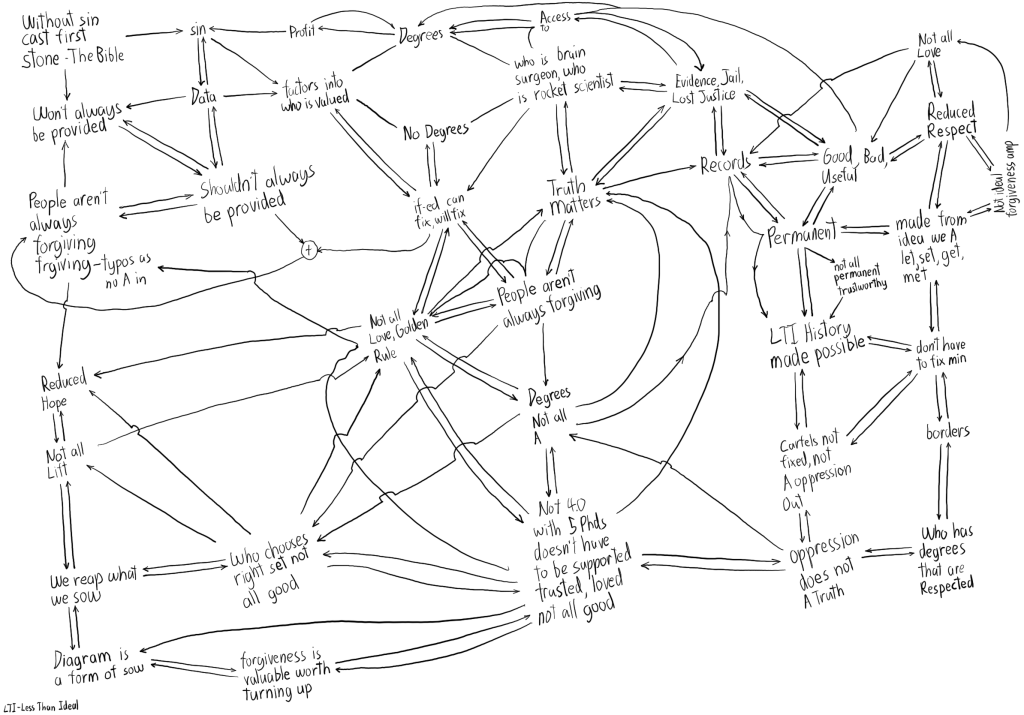 Without sin
cast first
stone - The Bible
sin
Profit
Degrees
Access
to
Not all
Love
Won't always
be provided
Data
factors into
who is valued
No Degrees
who is brain
surgeon, who
is rocket scientist
Evidence, Jail,
Lost Justice
Reduced
Respect
Records
Good, Bad,
Useful
Not ideal
forgiveness amp
People aren't
always
forgiving
frgiving - typos as
no A in
Shouldn't always
be provided
+
if-ed can
fix, will fix
Truth
Matters
Permanent
not all
permanent
trustworthy
made from
idea we A
let, set, get,
met
People aren't
always forgiving
Not all
Love, Golden
Rule
LTI History
made possible
don't have
to fix min
Reduced
Hope
Degrees
Not all
A
Not all
Lift
Cartels not
fixed, not
A oppression
Out
borders
We reap what
we sow
Who chooses
right set not
all good
Not 4.0
with 5 Phds
doesn't have
to be supported
trusted, loved
not all good
oppression
does not
A Truth
Who has
degrees
that are
Respected
Diagram is
a form of sow
forgiveness is
valuable worth
turning up
LTI-Less Than Ideal